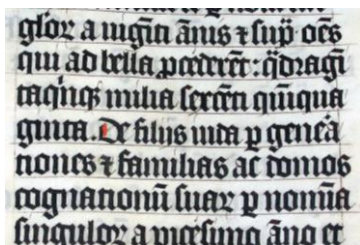 gloꝝ a uiginti ānis ⁊ sup̄ om̄s
qui ad bella ꝓcederēt : q̄dragī
taqinqꝫ milia sexcēti qūiqua
ginta. De filijs iuda p genea
tiones ⁊ familias ac domos
cognationū suaꝝ p nomīa
singuloꝝ a vicesimo āno et